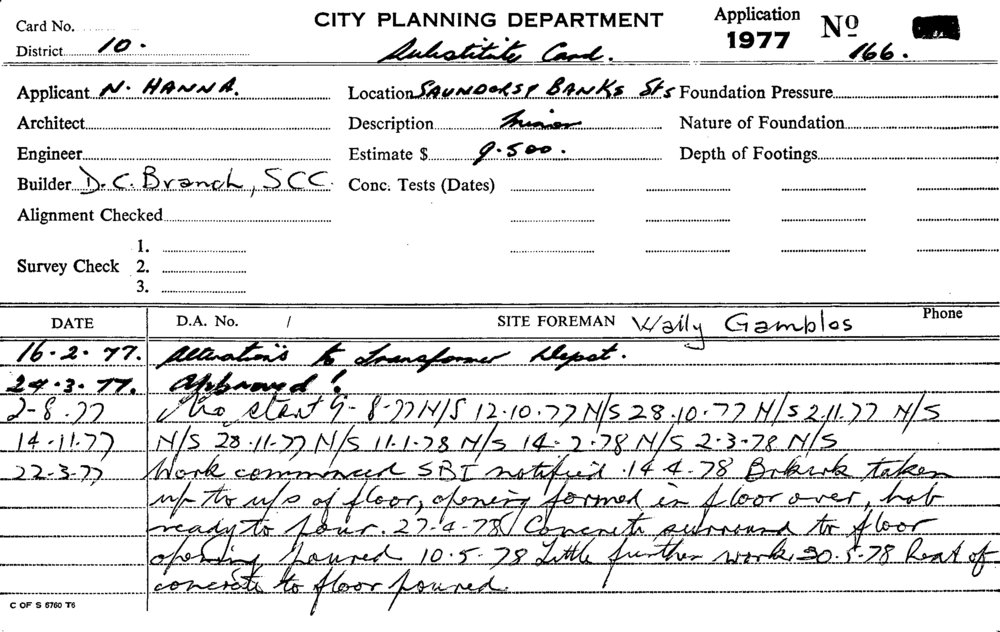 Card No.
CITY PLANNING DEPARTMENT
Application 1977 No 166.
District 10.
Substitute Card.
Applicant N. HANNA.
Location SAUNDERS & BANKS Sts
Foundation Pressure
Architect
Description Minor
Nature of Foundation
Engineer
Estimate $ 9.500.
Depth of Footings
Builder D. C. Branch, SCC.
Conc. Tests (Dates)
Alignment Checked
1.
Survey Check 2.
3.
DATE D.A. No. / SITE FOREMAN Wally Gambles Phone
16.2.77. Alterations to transformer Depot.
24.3.77. Approved!
2-8.77 No start 9-8-77 N/S 12.10.77 N/S 28.10.77 N/S 2.11.77 N/S
14.11.77 N/S 28.11.77 N/S 11.1.78 N/S 14.2.78 N/S 2.3.78 N/S
22-3-77 Work commenced SBI notified. 14.4.78 Brkwk taken
up to u/s of floor, opening formed in floor over, hob
ready to pour. 27-4-78 Concrete surround to floor
opening poured 10.5.78 Little further work 30.5.78 Rest of
concrete to floor poured.
C OF S 6760 T6